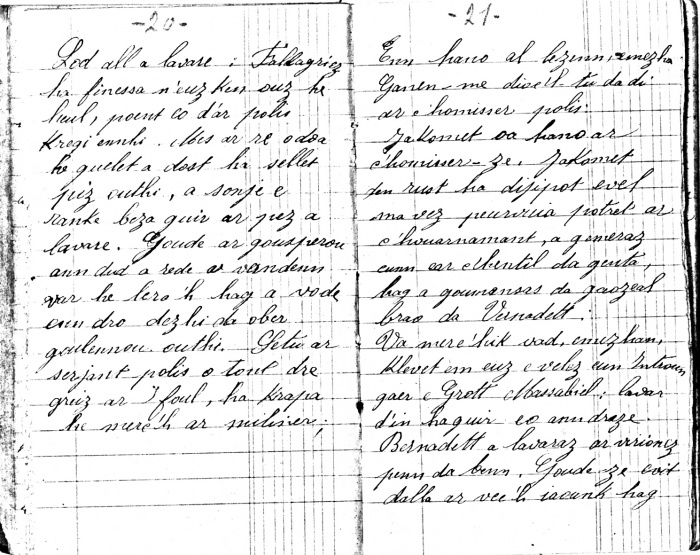 - 20 -
Lod all a lavare : Fallagriez
ha finessa n'euz ken ouz he
heul, poent eo d'ar polis
Kregi ennhi. Mes ar re o doa
he guelet a dost ha sellet
piz outhi, a sonje e
ranke beza guir ar pez a
lavare. Goude ar gousperou
ann dud a rede ar vandenn
var he lerc'h hag a vode
enn dro dezhi da ober
goulennou outhi. Setu ar
serjant polis o tont dre
greiz ar foul, ha Krapa
he merc'h ar miliner ;
- 21 -
Enn hano al lezenn, emezha
Ganen-me dioc'h tu da di
ar c'homisser polis.
Jakomet oa hano ar
c'homisser-ze. Jakomet
den rust ha difipot evel
ma vez peurvuia potret ar
c'houarnamant, a gemeraz
eunn ear c'hentil da genta,
hag a goumansas da gaozeal
brao da Vernadett :
Va merc'hik vad, emezhan,
Klevet em euz e velez eun Introun
gaer e Grott Massabiel ; lavar
d'in ha guir eo ann draze
Bernadett a lavaraz ar virionez
penn da benn. Goude-ze evit
dalla ar verc'h iaouank hag